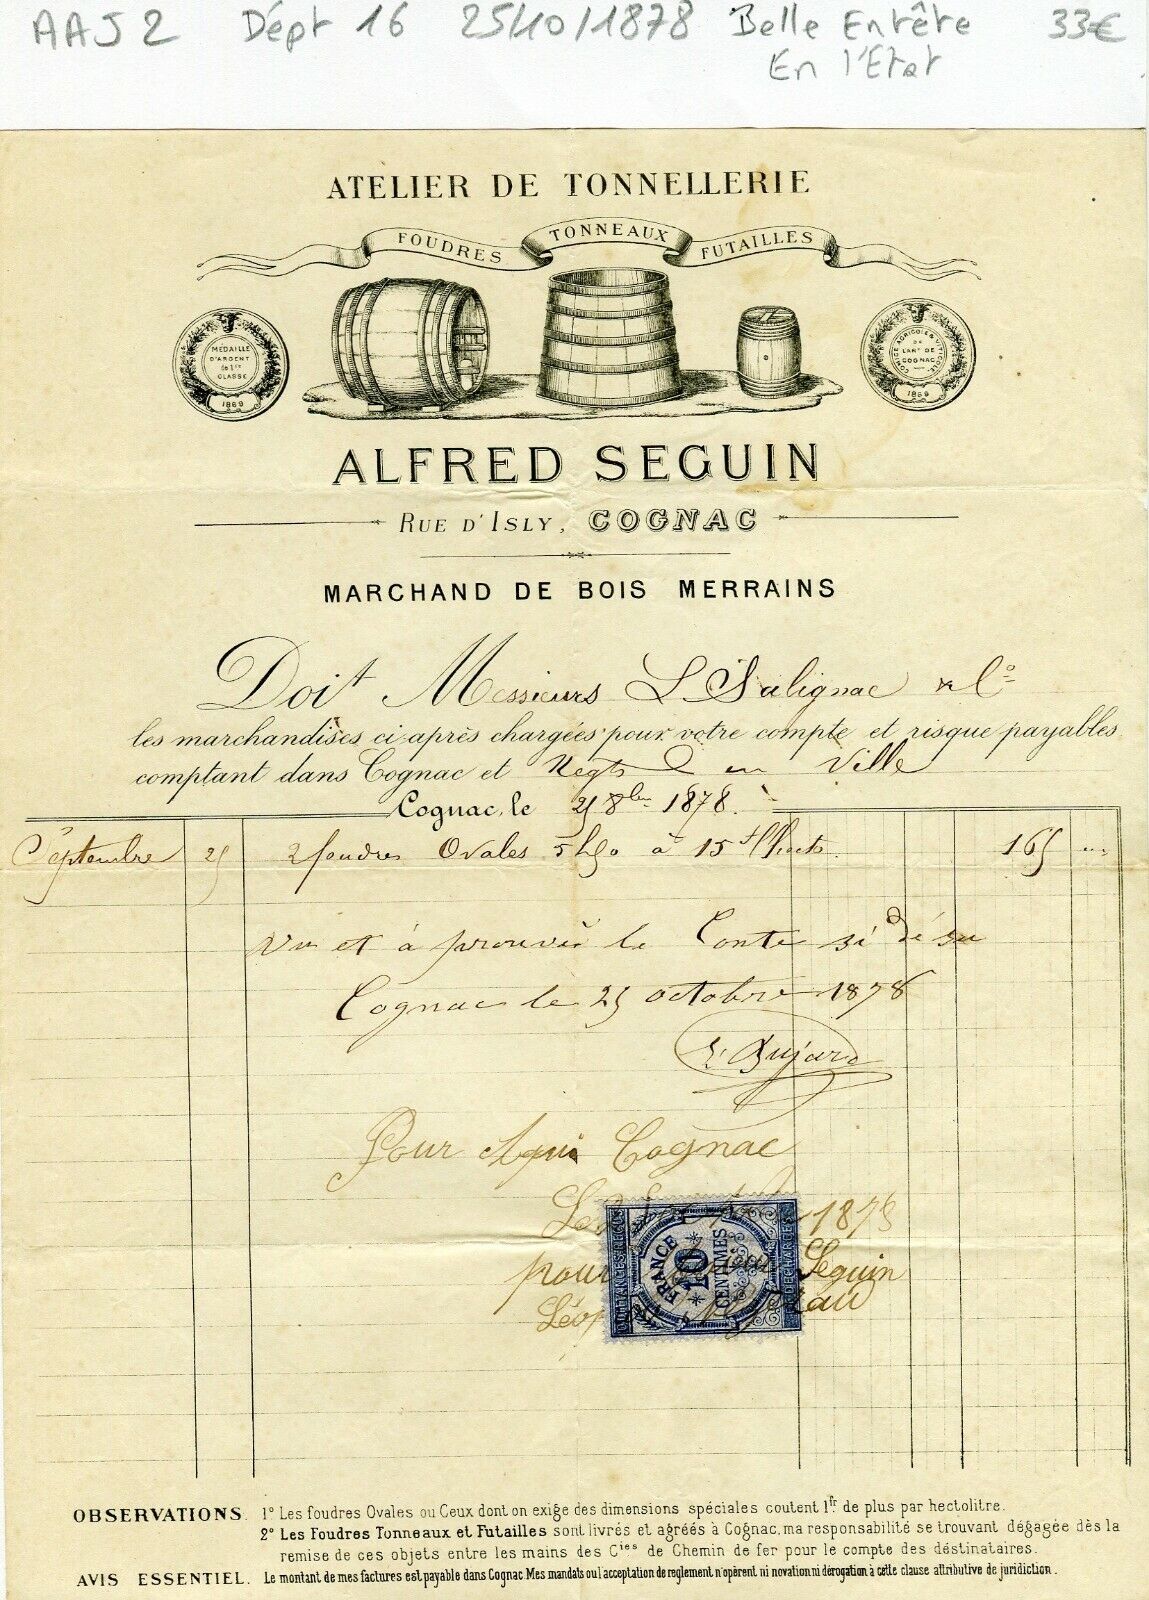 AAJ2 Dépt 16 25/10/1878 Belle Entête 33€
En l'Etat
ATELIER DE TONNELLERIE
FOUDRES TONNEAUX FUTAILLES
MEDAILLE
D'ARGENT
de 1re
CLASSE
1869
COMICE AGRICOLE & VITICOLE
DE
L'ARt DE
COGNAC
1869
ALFRED SEGUIN
RUE D'ISLY, COGNAC
MARCHAND DE BOIS MERRAINS
Doit Messieurs L Salignac & Co
les marchandises ci-après chargées pour votre compte et risque payables
comptant dans Cognac et Negts en Ville
Cognac, le 25 8bre 1878
Septembre 25 2 foudres Ovales 5h50 à 15 f l'hecto 165 "
Vu et à prouvér le Conte si dé su
Cognac le 25 octobre 1878
Pour Cognac
Le 1878
pour Seguin
QUITTANCES, REÇUS
FRANCE
10
CENTIMES
& DECHARGES
OBSERVATIONS. 1° Les foudres Ovales ou Ceux dont on exige des dimensions spéciales coutent 1fr de plus par hectolitre.
2° Les Foudres Tonneaux et Futailles sont livrés et agréés à Cognac, ma responsabilité se trouvant dégagée dès la
remise de ces objets entre les mains des Cies de Chemin de fer pour le compte des déstinataires.
AVIS ESSENTIEL. Le montant de mes factures est payable dans Cognac Mes mandats ou l'acceptation de reglement n'opèrent ni novation ni dérogation à cette clause attributive de juridiction.